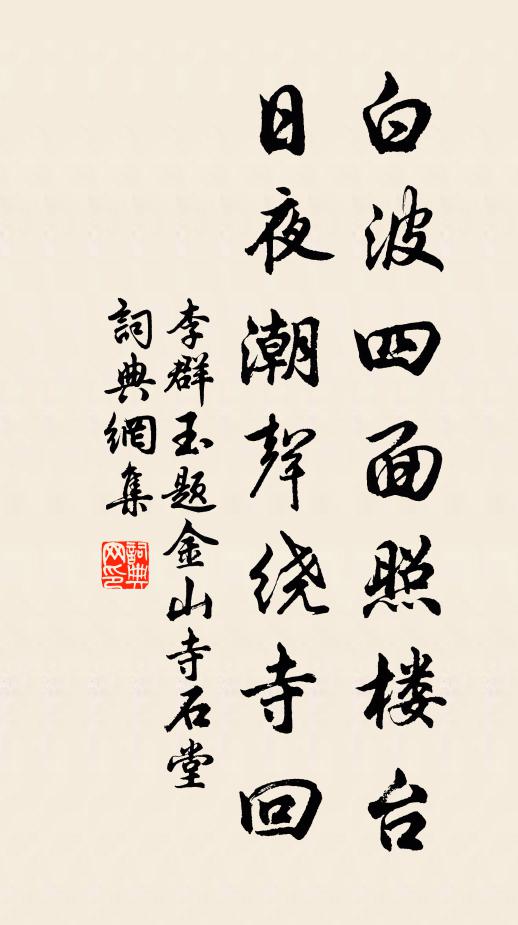 白波四面照楼台
日夜潮聲绕寺回
李群玉题金山寺石堂
詞典網集
詞典网印